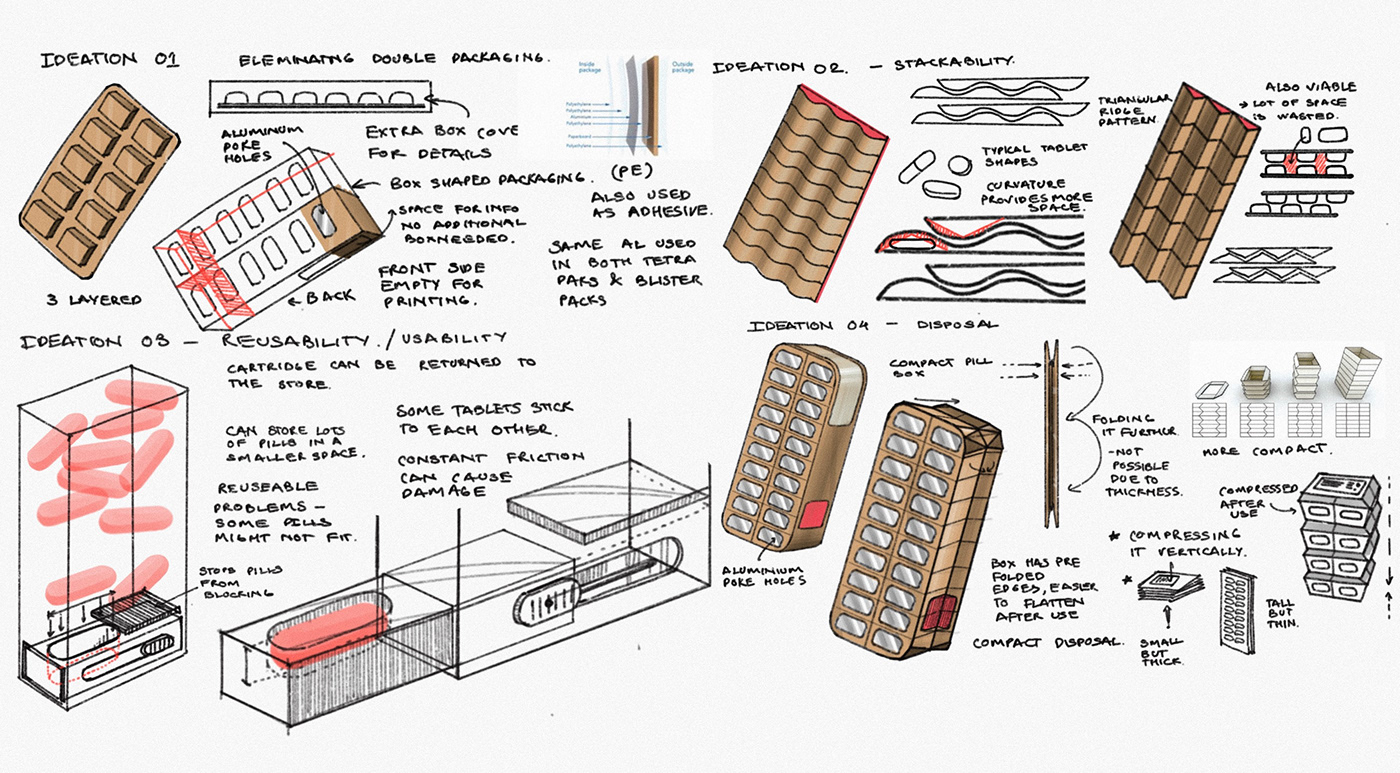 IDEATION 01
ELEMINATNG DOUBLE PACKAGING.
ALUMINUM
POKE
HOLES
EXTRA BOX COVE
FOR DETAILS
BOX SHAPED PACKAGING.
SPACE FOR INFO
NO ADDITIONAL
BOX NEEDED.
FRONT SIDE
EMPTY FOR
PRINTING.
← BACK
3 LAYERED
Inside
package
Outside
package
Polyethylene
Polyethylene
Aluminium
Polyethylene
Paperboard
Polyethylene
(PE)
ALSO USED
AS ADHESIVE.
SAME AL USED
IN BOTH TETRA
PAKS & BLISTER
PACKS
IDEATION 02. — STACKABILITY.
TRIANGULAR
RIDGE
PATTERN.
TYPICAL TABLET
SHAPES
CURVATURE
PROVIDES MORE
SPACE.
ALSO VIABLE
→ LOT OF SPACE
IS WASTED.
IDEATION 03 — REUSABILITY./USABILITY
CARTRIDGE CAN BE RETURNED TO
THE STORE.
CAN STORE LOTS
OF PILLS IN A
SMALLER SPACE.
REUSEABLE
PROBLEMS —
SOME PILLS
MIGHT NOT FIT.
SOME TABLETS STICK
TO EACH OTHER.
CONSTANT FRICTION
CAN CAUSE
DAMAGE
STOPS PILLS
FROM
BLOCKING
IDEATION 04 — DISPOSAL
COMPACT PILL
BOX
FOLDING
IT FURTHER.
-NOT
POSSIBLE
DUE TO
THICKNESS.
MORE COMPACT.
COMPRESSED
AFTER
USE
* COMPRESSING
IT VERTICALLY.
*
SMALL
BUT
THICK.
TALL
BUT
THIN.
ALUMINIUM
POKE HOLES
BOX HAS PRE
FOLDED
EDGES, EASIER
TO FLATTEN
AFTER USE
COMPACT DISPOSAL.